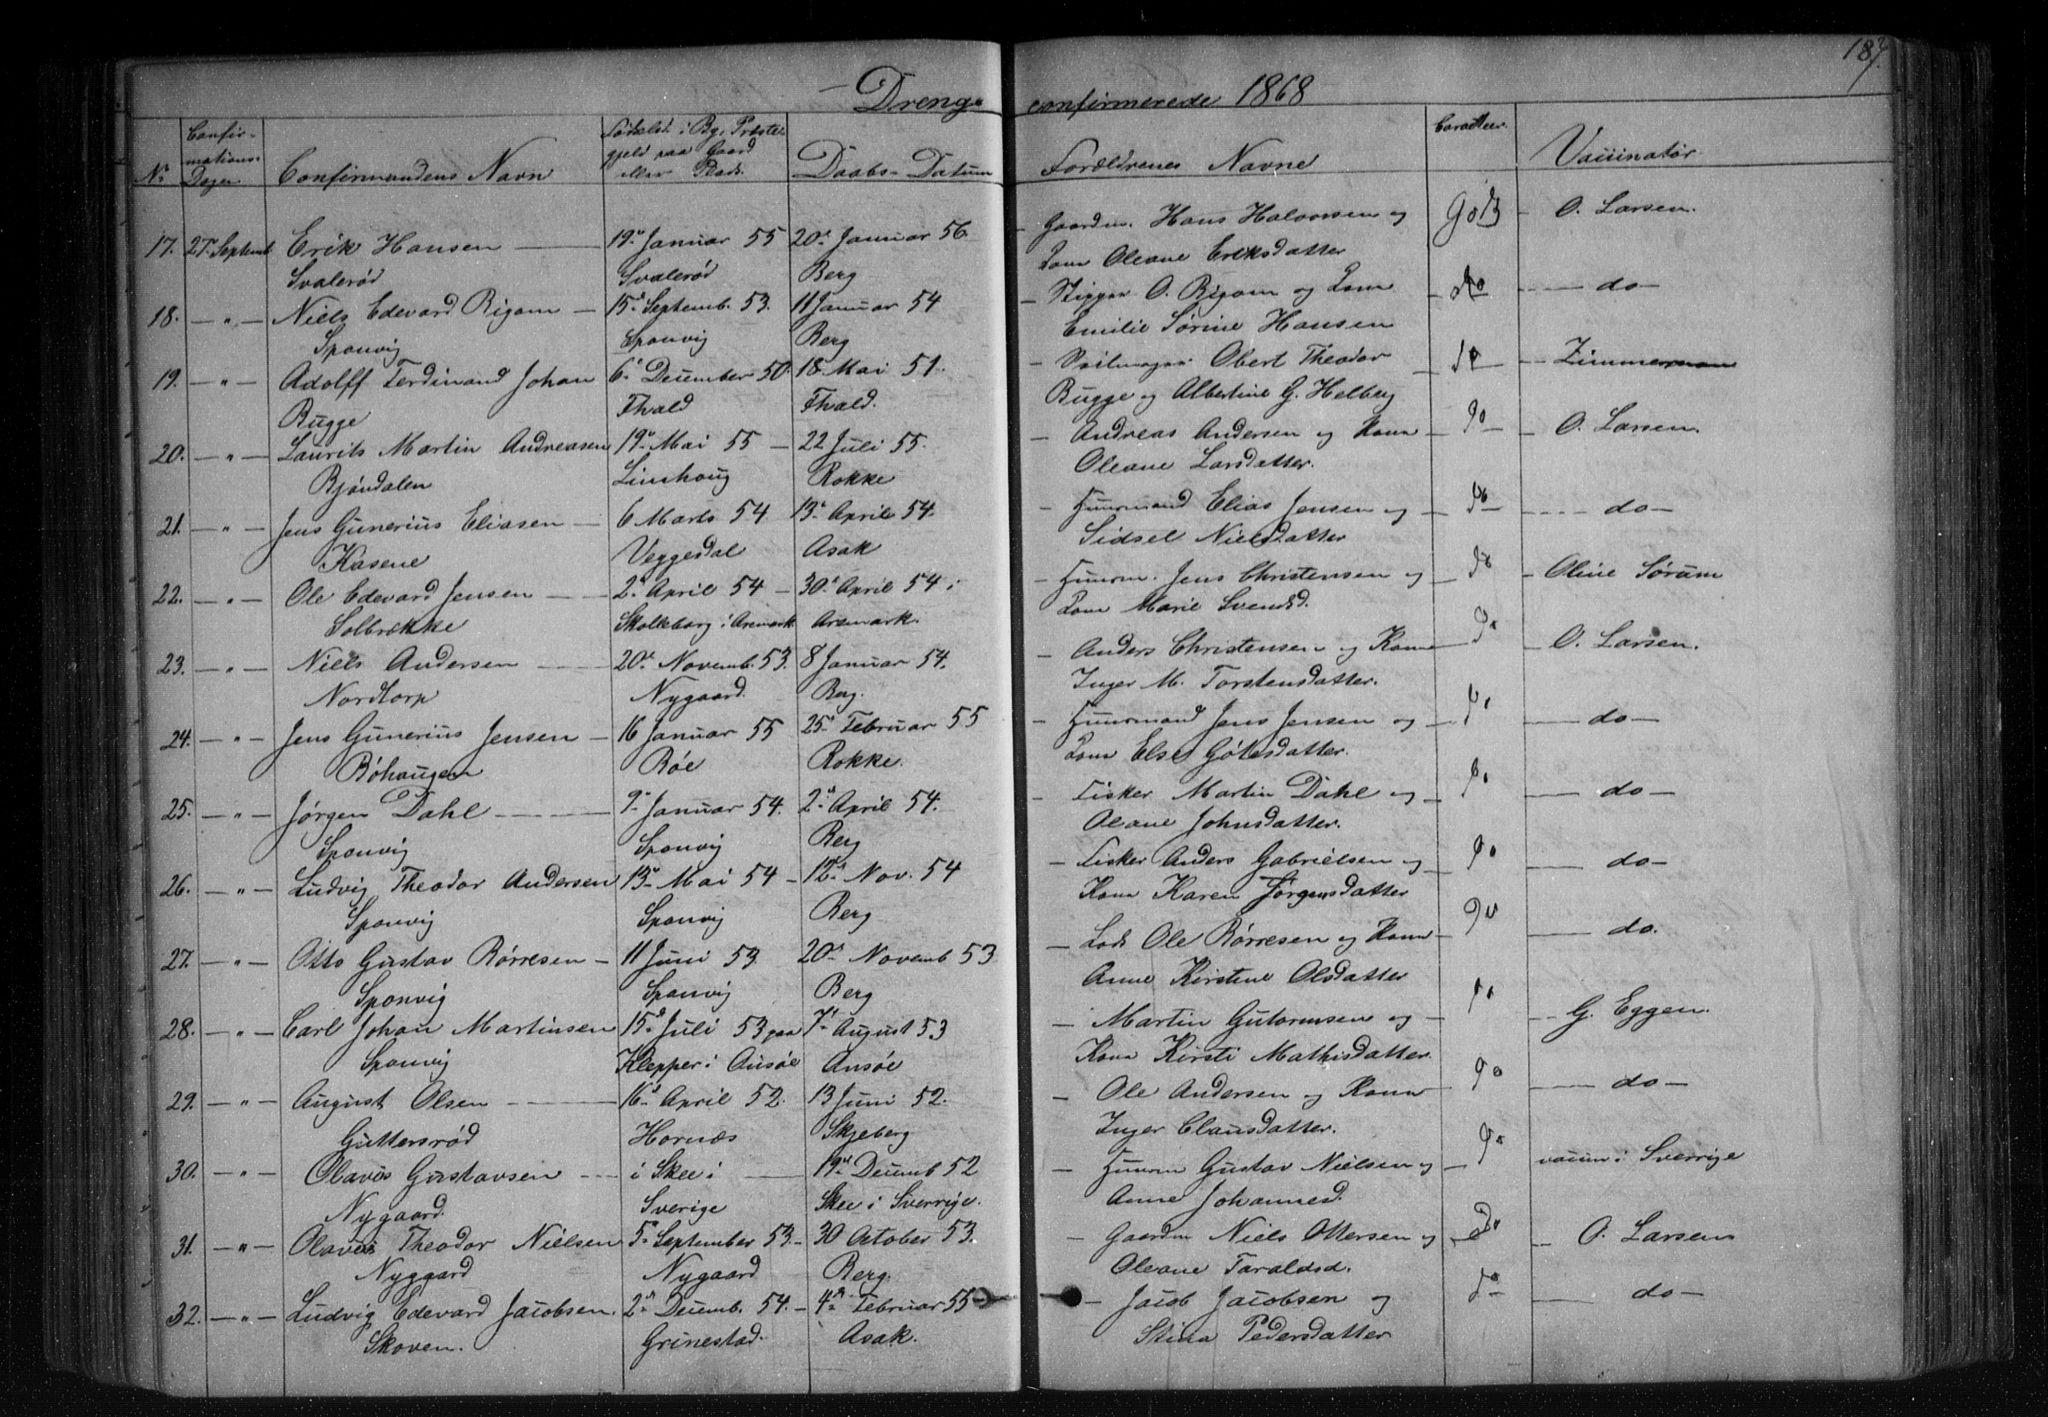 187.
Drenge confirmerede 1868
No Confirmations-Dagen Confirmandens Navn Fødested i Bg. Præstegjeld paa Gaard eller Plads. Daabs-Datum Forældrenes Navne Caracteer. Vaccinatør
17. 27de Septemb Erik Hansen — 19de Januar 55 20de Januar 56 — Gaardm. Hans Halvorsen og G o B — O. Larsen.
Svalerød Svalerød Berg Kone Oleane Eriksdatter
18. — " — Niels Edevard Bigom — 15de Septemb. 53. 11 Januar 54 — Skipper O. Bigom og Kone — do — do —
Sponvig Sponvig Berg Emilie Sørine Hansen
19. — " — Adolff Ferdinand Johan 6te December 50. 18 Mai 51. — Obert Theodor do — Zimmerman
Bugge Fhald Fhald. Bugge og Albertine G. Helberg
20. — " — Laurits Martin Andreasen 19de Mai 55 — 22 Juli 55. — Andreas Andersen og Kone — do — O. Larsen.
Bjøndalen Linshoug Rokke Oleane Larsdatter.
21. — " — Jens Gunerius Eliasen — 6 Marts 54 13de April 54. — Huusmand Elias Jensen og — do — do —
Kasene Veggesdal Asak Sidsel Nielsdatter
22. — " — Ole Edevard Jensen — 2de April 54 — 30de April 54 i — Huusm. Jens Christensen og — do — Oline Sørum
Solbrække Skolleborg i Aremark Aremark. Kone Marie Svendsd.
23. — " — Niels Andersen — 20de Novemb. 53. 8 Januar 54. — Anders Christensen og Kone do — O. Larsen.
Nordtorp Nygaard. Berg. Inger M. Torstensdatter.
24. — " — Jens Gunerius Jensen — 16 Januar 55 25de Februar 55 — Huusmand Jens Jensen og — do — do —
Böhaugen Röe Rokke. Kone Else Götesdatter.
25. — " — Jørgen Dahl — 9de Januar 54. 2den April 54. — Fisker Martin Dahl og — do — do —
Sponvig Sponvig Berg Oleane Johnsdatter.
26. — " — Ludvig Theodor Andersen 13de Mai 54 — Nov. 54 — Fisker Anders Gabrielsen og — do — do —
Sponvig Sponvig Berg Kone Karen Jørgensdatter
27. — " — Otto Gustav Børresen — 11 Juni 53 20de Novemb 53 — Lods Ole Børresen og Kone — do — do.
Sponvig Sponvig Berg Anne Kirstine Olsdatter
28. — " — Carl Johan Martinsen 15de Juli 53 paa 7de August 53 — Martin Gutormsen og — do — G. Eggen.
Sponvig Klepper i Ansøe Ansøe Kone Kirsti Mathisdatter
29. — " — August Olsen — 16de April 52. 13 Juni 52. — Ole Andersen og Kone do — do —
Guttersrød Hornæs Skjeberg Inger Clausdatter.
30. — " — Olavus Gustavsen — i Skee i — 19de Decemb 52 — Huusm Gustav Nielsen og — do vaccin i Sverrige
Nygaard. Sverige Skee i Sverrige. Anne Johannesd.
31. — " — Olavus Theodor Nielsen 5te September 53. — 30 October 53. — Gaardm Niels Ottersen og — do — O. Larsen
Nyggard Nygaard Berg. Oleane Taraldsd.
32. — " — Ludvig Edevard Jacobsen. 2den Decemb. 54. — 4de Februar 55 — Jacob Jacobsen og do — do —
Skoven. Grinestad. Asak. Stina Pedersdatter